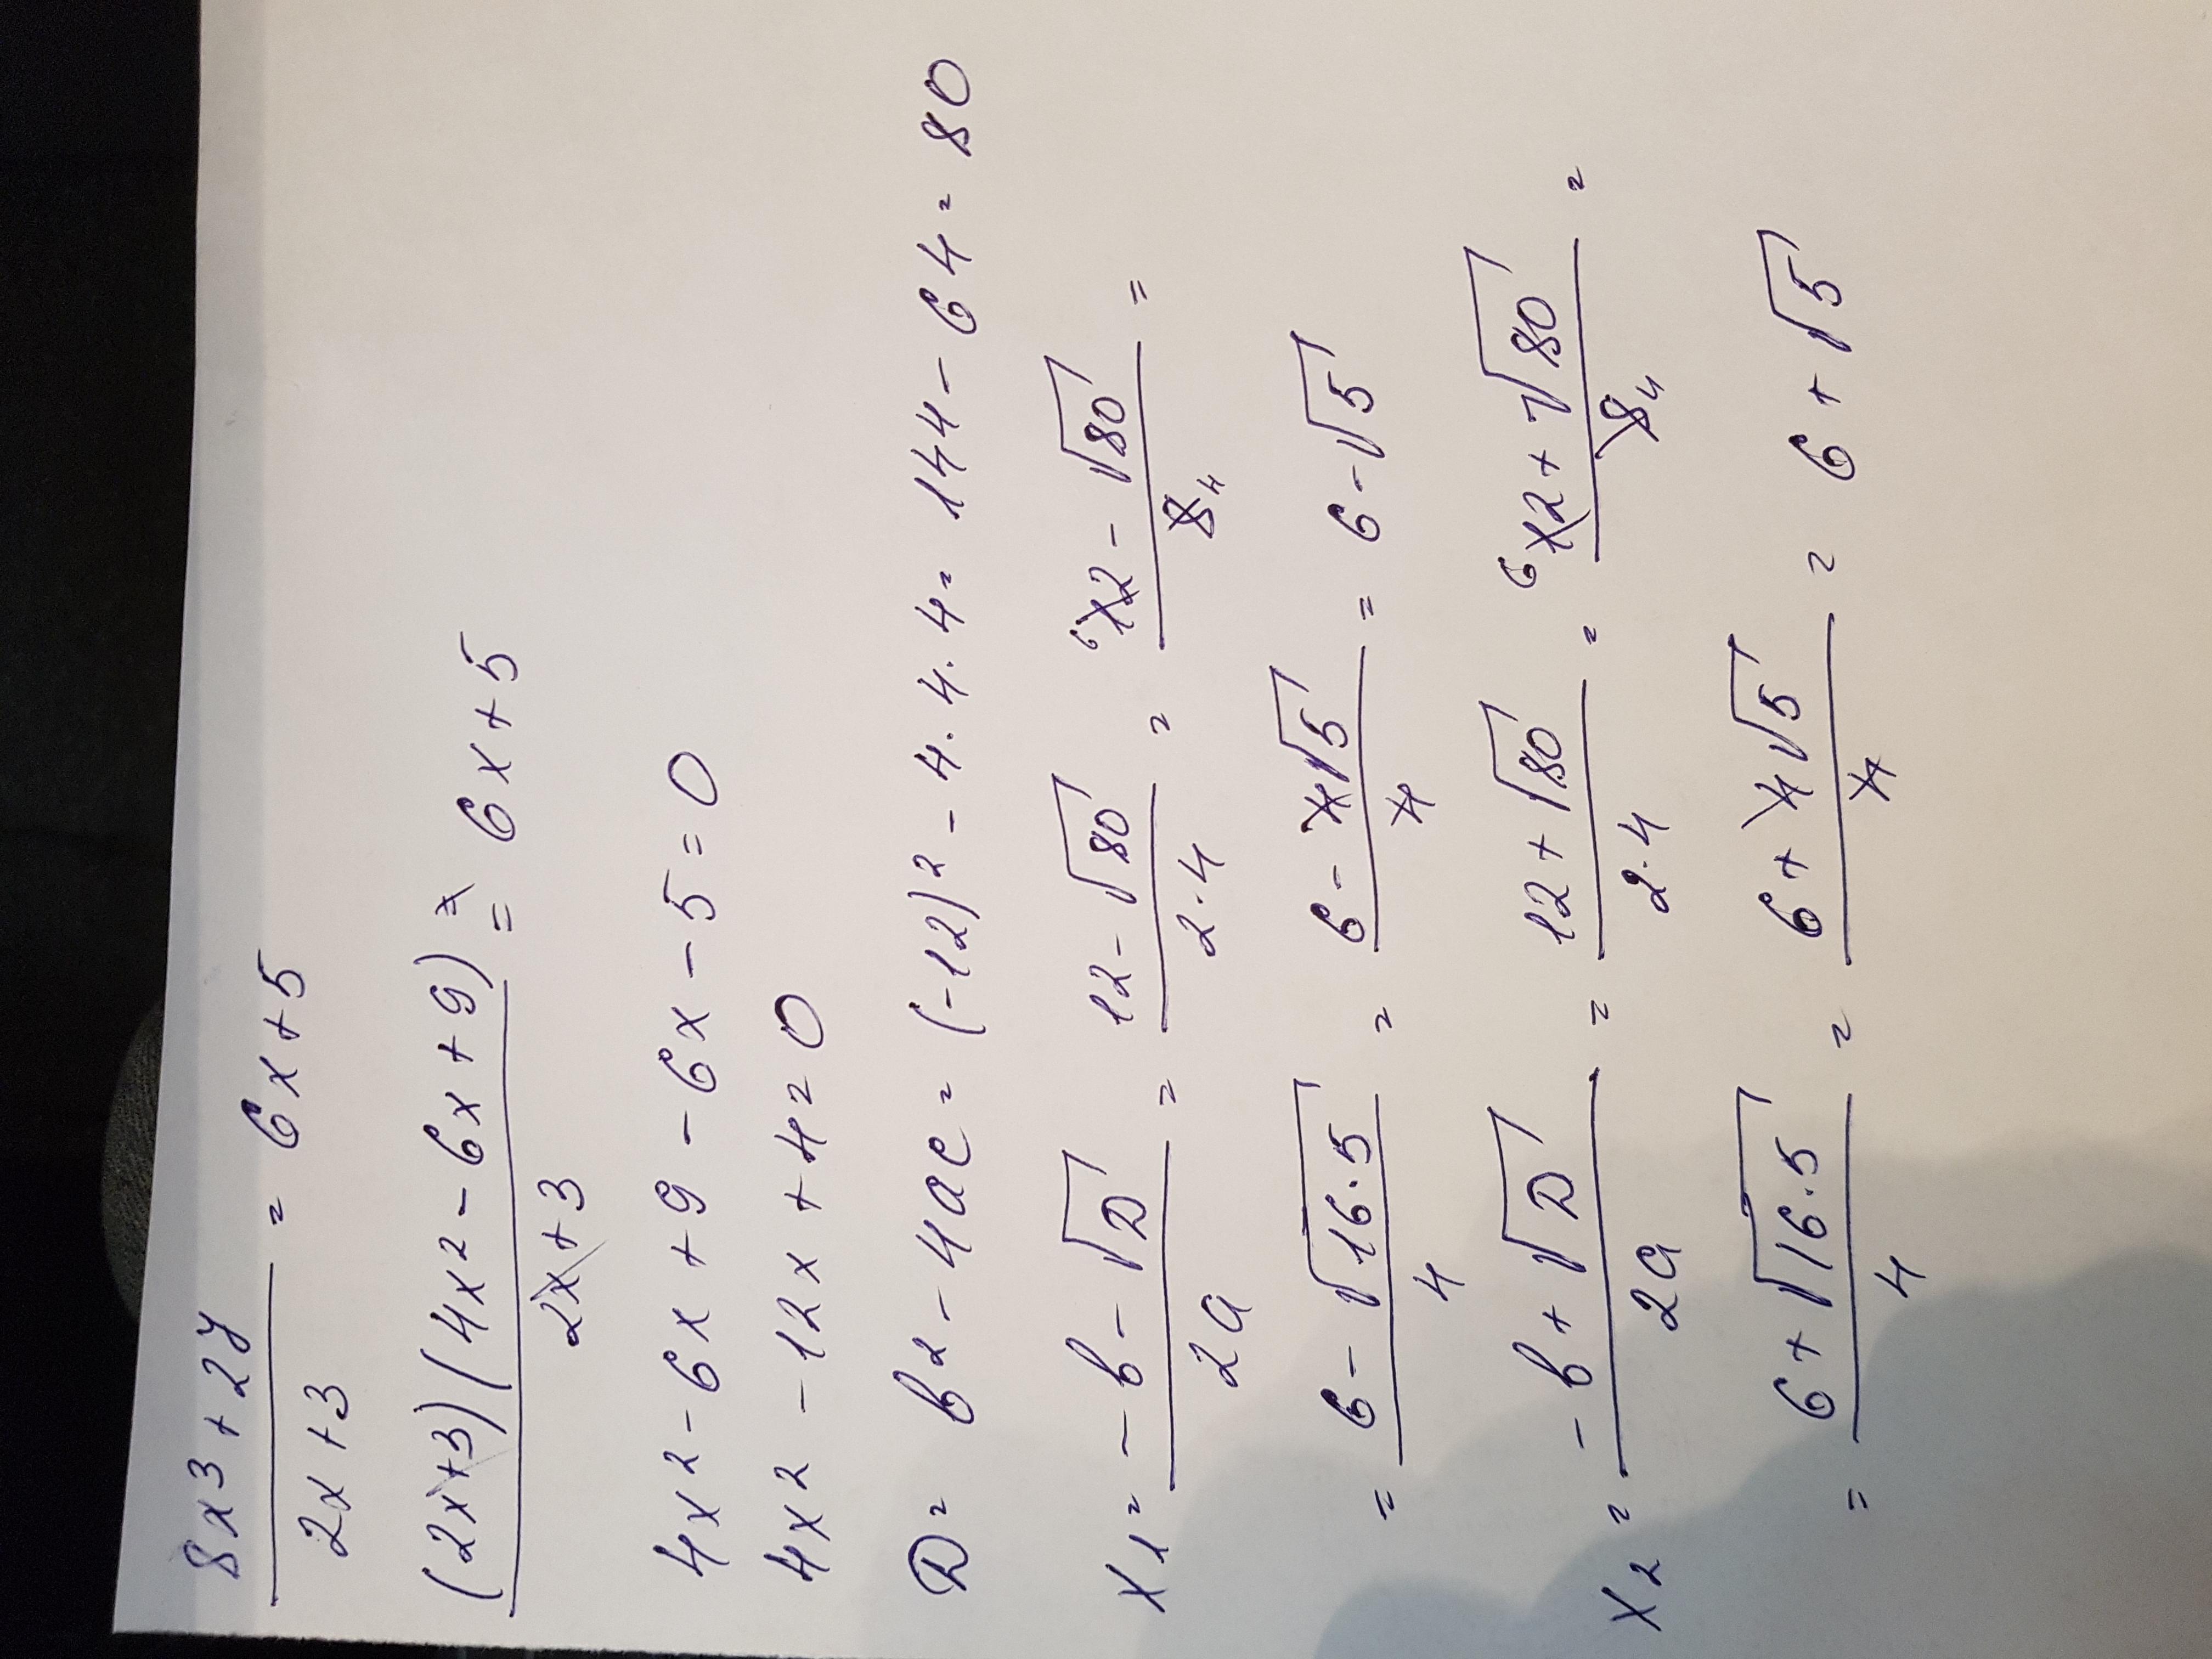 8x3+27 / 2x+3 = 6x+5
(2x+3)(4x2-6x+9) / 2x+3 = 6x+5
4x2-6x+9-6x-5=0
4x2-12x+4=0
D= b2-4ac= (-12)2-4·4·4=144-64=80
x1= -b-√D / 2a = 12-√80 / 2·4 = 6 12-√80 / 8 4 =
= 6-√16·5 / 4 = 6-4√5 / 4 = 6-√5
x2= -b+√D / 2a = 12+√80 / 2·4 = 6 12+√80 / 8 4 =
= 6+√16·5 / 4 = 6+4√5 / 4 = 6+√5